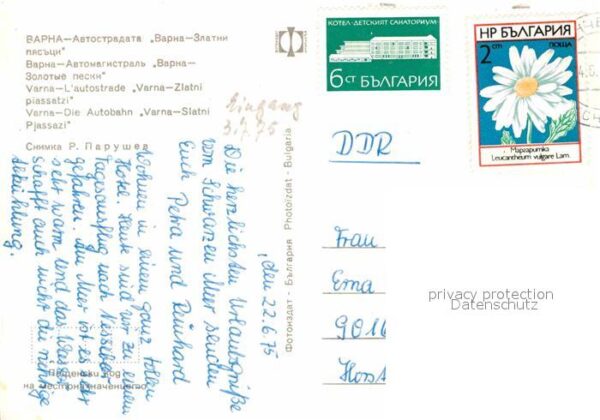 ВАРНА—Автострадата „Варна—Златни
пясъци“
Варна—Автомагистраль „Варна—
Золотые пески“
Varna—L'autostrade „Varna—Zlatni
piassatzi“
Varna—Die Autobahn „Varna—Slatni
Pjassazi“
Снимка Р. Парушев
Eingang
3.7.75
КОТЕЛ-ДЕТСКИЯТ САНАТОРИУМ
6 СТ БЪЛГАРИЯ
НР БЪЛГАРИЯ
2 cm ПОЩА
Маргаритка
Leucantheum vulgare Lam.
DDR
Frau
Erna
9016
Horst
, den 22.6.75
Die herzlichsten Urlaubsgrüße
vom Schwarzen Meer senden
Euch Petra und Reinhard
Wohnen in einem ganz tollen
Hotel. Heute sind wir zu einem
Tagesausflug nach Nessebar
gefahren. Am Meer ist es sehr
sehr warm und das Wasser
schafft auch nicht die richtige
Abkühlung.
Фотоиздат - България Photoizdat - Bulgaria
Пощенски код
на местоназначението
privacy protection
Datenschutz